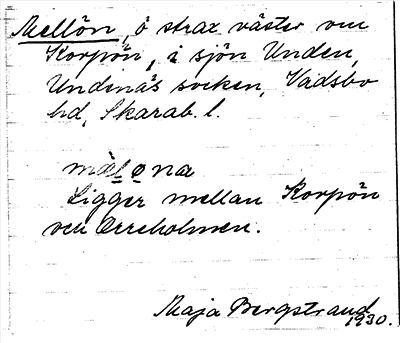 Mellön, ö strax väster om
Korpön, i sjön Unden,
Undenäs socken, Vadsbo
hd, Skarab. l.
Ligger mellan Korpön
och Orreholmen.
Maja Bergstrand
1930.